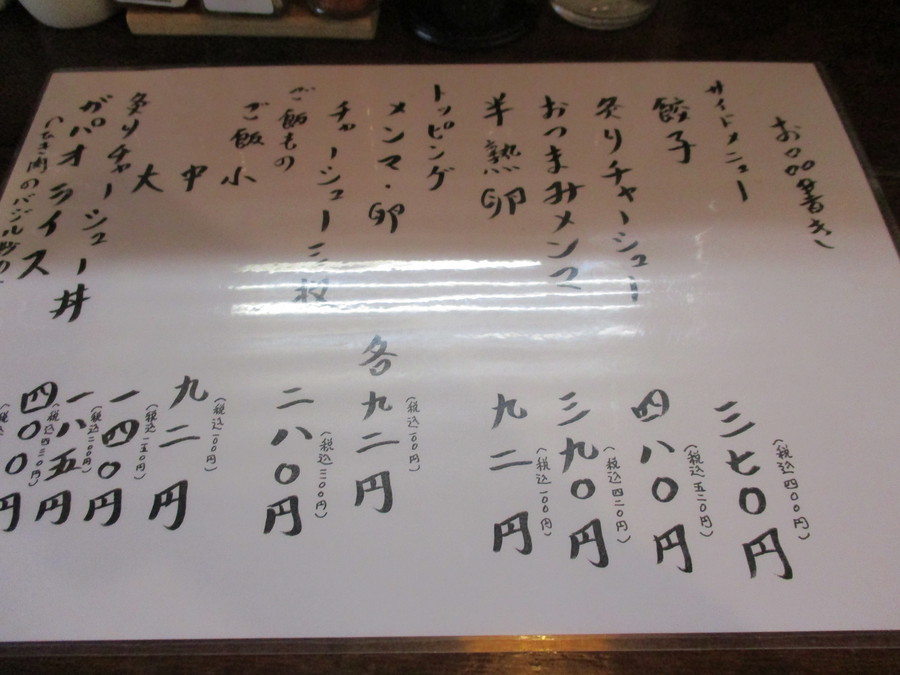 お品書き
サイドメニュー
餃子 三七〇円
(税込四〇〇円)
炙りチャーシュー 四八〇円
(税込五二〇円)
おつまみメンマ 三九〇円
(税込四二〇円)
半熟卵 九二円
(税込一〇〇円)
トッピング
メンマ・卵 各九二円
(税込一〇〇円)
チャーシュー三枚 二八〇円
(税込三〇〇円)
ご飯もの
ご飯 小 九二円
(税込一〇〇円)
中 一四〇円
(税込一五〇円)
大 一八五円
(税込二〇〇円)
炙りチャーシュー丼 四〇〇円
(税込四三〇円)
ガパオライス 円
(税込
(ひき肉のバジル炒め